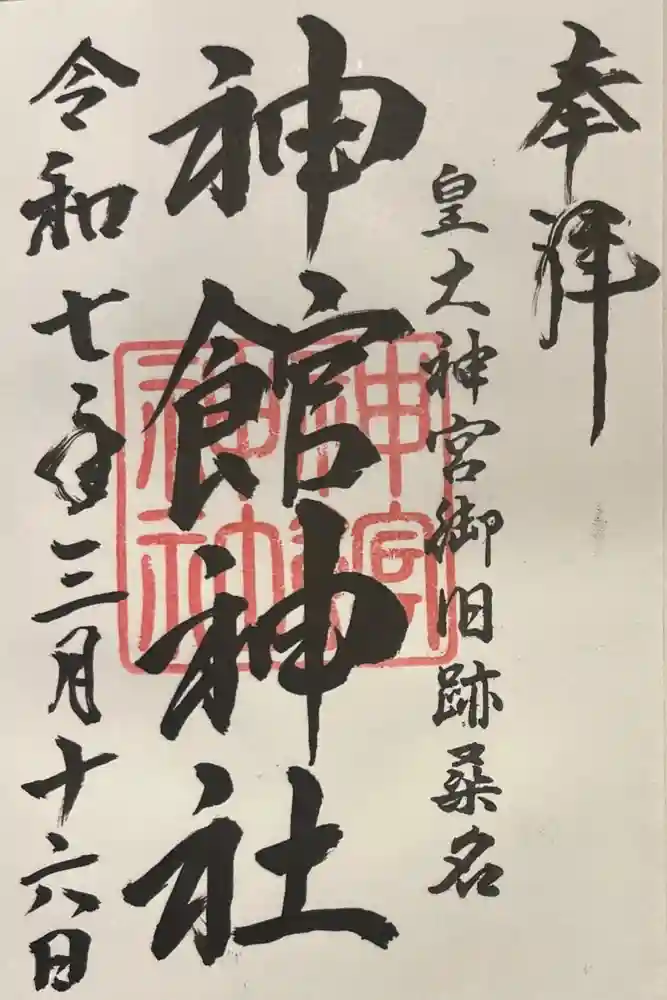 奉拝
皇大神宮御旧跡桑名
神館神社
令和七年三月十六日
神館
神社